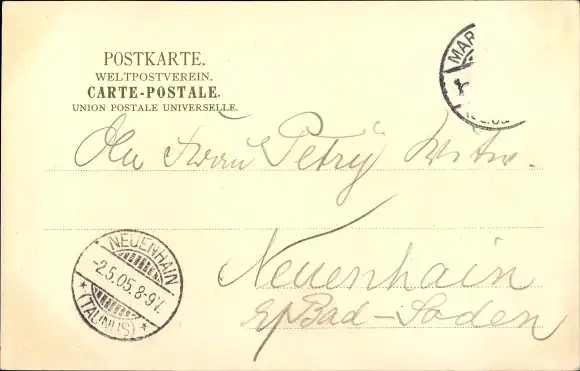 POSTKARTE.
WELTPOSTVEREIN.
CARTE-POSTALE.
UNION POSTALE UNIVERSELLE.
MAR
An Frau Petry Witw.
NEUENHAIN
-2.5.05.8-9V.
* (TAUNUS) *
Neuenhain
b/Bad-Soden